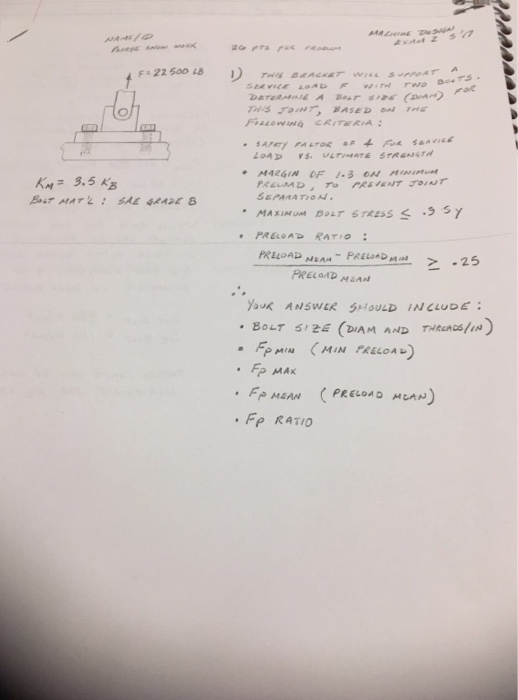 NAME/ID
PLEASE SHOW WORK
20 PTS PER PROBLEM
MACHINE DESIGN
EXAM 2 S'17
F = 22 500 LB
KM = 3.5 KB
BOLT MAT'L : SAE GRADE 8
1) THIS BRACKET WILL SUPPORT A
SERVICE LOAD F WITH TWO BOLTS.
DETERMINE A BOLT SIZE (DIAM) FOR
THIS JOINT, BASED ON THE
FOLLOWING CRITERIA :
• SAFETY FACTOR OF 4 FOR SERVICE
LOAD VS. ULTIMATE STRENGTH
• MARGIN OF 1.3 ON MINIMUM
PRELOAD, TO PREVENT JOINT
SEPARATION.
• MAXIMUM BOLT STRESS ≤ .9 SY
• PRELOAD RATIO :
PRELOAD MEAN - PRELOAD MIN
PRELOAD MEAN
≥ .25
∴
YOUR ANSWER SHOULD INCLUDE :
• BOLT SIZE (DIAM AND THREADS/IN)
• FP MIN (MIN PRELOAD)
• FP MAX
• FP MEAN (PRELOAD MEAN)
• FP RATIO